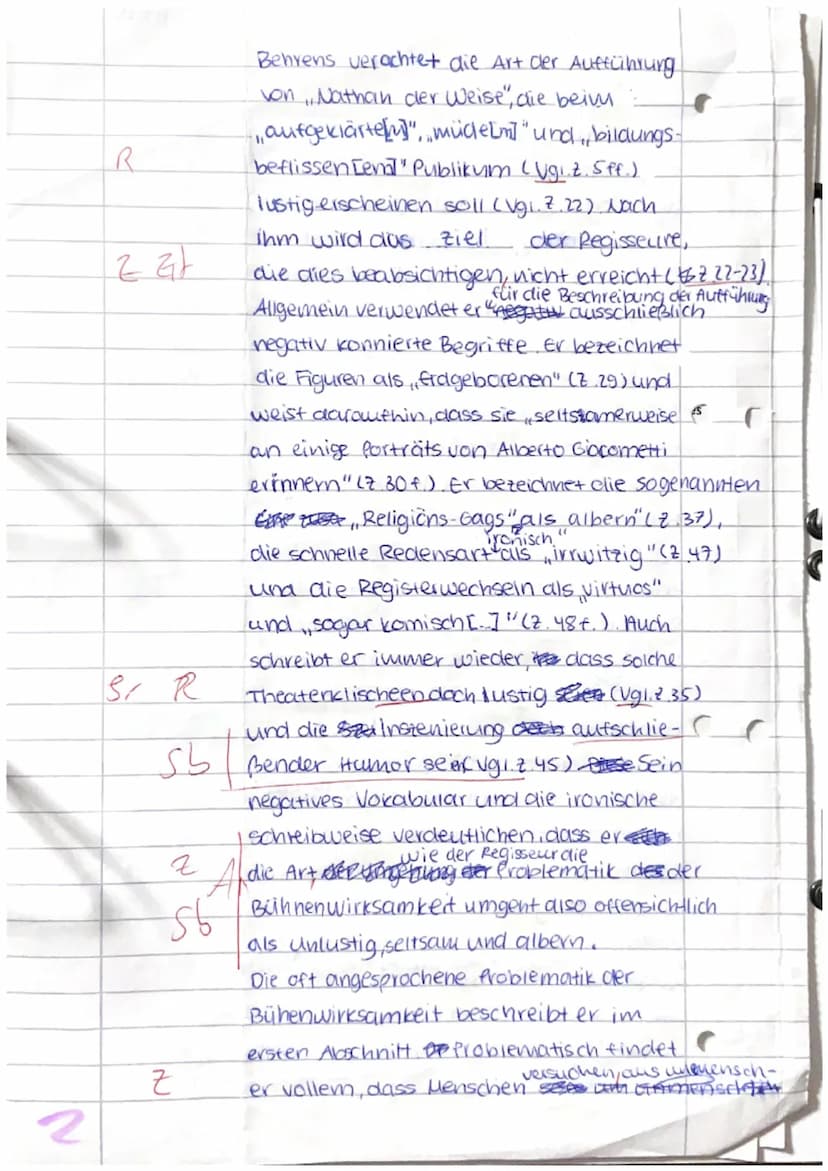 Behrens verachtet die Art der Aufführung
von „Nathan der Weise", die beim
„aufgeklärte[n]", „müde[n]" und „bildungs-
R beflissen[en]" Publikum (Vgl. Z. 5ff.)
lustig erscheinen soll (Vgl. Z. 22). Nach
ihm wird das Ziel der Regisseure,
Z Zt die dies beabsichtigen, nicht erreicht (Z. 22-23)
für die Beschreibung der Aufführung
Allgemein verwendet er ausschließlich
negativ konnierte Begriffe. Er bezeichnet
die Figuren als „Erdgeborenen" (Z. 29) und
weist daraufhin, dass sie „seltsamerweise
an einige Porträts von Alberto Giacometti
erinnern" (Z. 30f.). Er bezeichnet die sogenannten
„Religions-Gags" als albern" (Z. 37),
ironisch
die schnelle Redensart als „irrwitzig" (Z. 47)
und die Registerwechseln als „virtuos"
und „sogar komisch[..]" (Z. 48f.). Auch
schreibt er immer wieder, dass solche
Sr R Theaterklischeen doch lustig (Vgl. Z. 35)
und die Instenierung aufschlie-
Sb ßender Humor sei (Vgl. Z. 45). Sein
negatives Vokabular und die ironische
Schreibweise verdeutlichen, dass er
wie der Regisseur die
Z A die Art, Problematik der
Sb Bühnenwirksamkeit umgeht also offensichtlich
als unlustig, seltsam und albern.
Die oft angesprochene Problematik der
Bühenwirksamkeit beschreibt er im
ersten Abschnitt. Problematisch findet
versuchen, aus
Z er vollem, dass Menschen
2